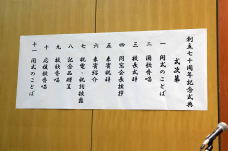 創立七十周年記念式典
式次第
一 開式のことば
二 国歌斉唱
三 校長式辞
四 同窓会長挨拶
五 来賓祝辞
六 来賓紹介
七 祝電・祝詞披露
八 記念品贈呈
九 校歌斉唱
十 応援歌斉唱
十一 閉式のことば